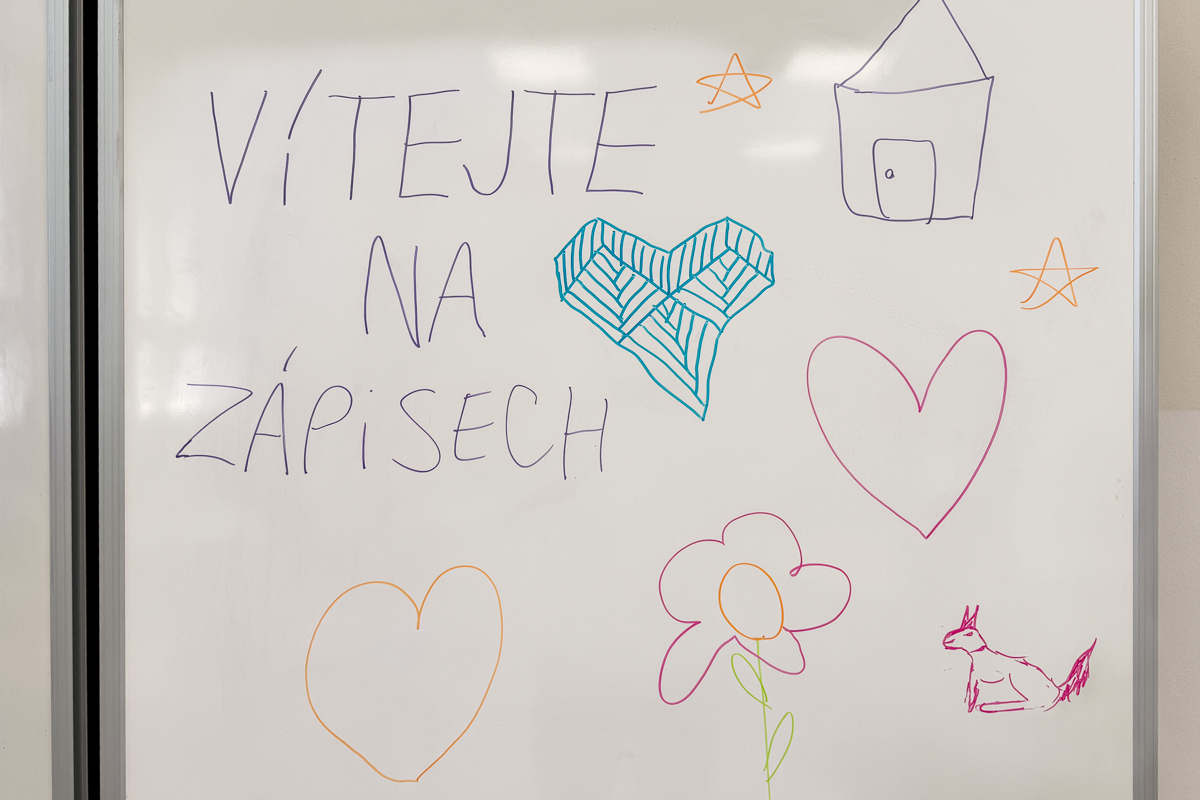 VÍTEJTE
NA
ZÁPISECH